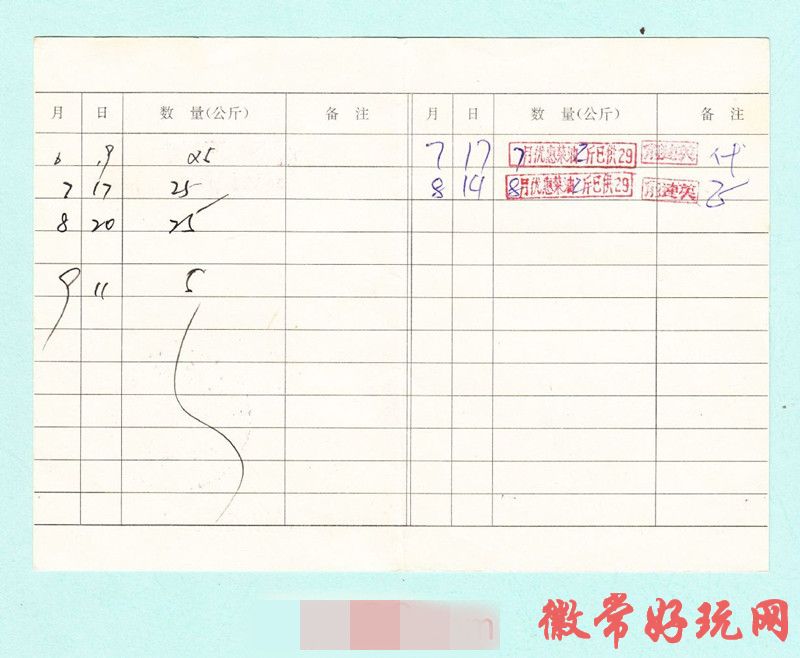 月 日 数 量(公斤) 备 注
6 19 25
7 17 25
8 20 25
9 11 5
月 日 数 量(公斤) 备 注
7 17 7月优惠菜油2斤已供29 代
8 14 8月优惠菜油2斤已供29
徽常好玩网